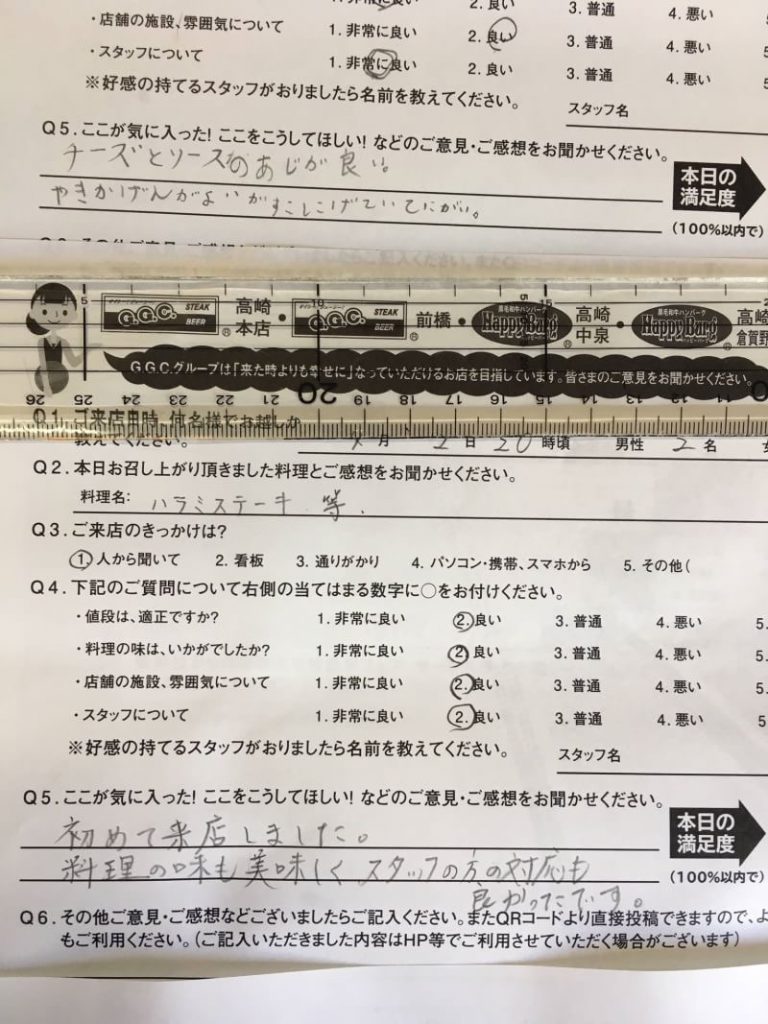 1. 非常に良い 2. 良い 3. 普通 4. 悪い
・店舗の施設、雰囲気について 1. 非常に良い 2. 良い 3. 普通 4. 悪い
・スタッフについて 1. 非常に良い 2. 良い 3. 普通 4. 悪い 5
※好感の持てるスタッフがおりましたら名前を教えてください。 スタッフ名
Q5. ここが気に入った! ここをこうしてほしい! などのご意見・ご感想をお聞かせください。
チーズとソースのあじが良い。
やきかげんがよいがすこしこげていてにがい。
本日の満足度
(100%以内で)
G.G.C. STEAK BEER ® 高崎本店・ G.G.C. STEAK BEER ® 前橋・ 黒毛和牛ハンバーグ Happy Burg ® 高崎中泉・ 黒毛和牛ハンバーグ Happy Burg ® 高崎倉賀野
G.G.C.グループは「来た時よりも幸せに」なっていただけるお店を目指しています。皆さまのご意見をお聞かせください。
5 10 15
26 25 24 23 22 21 20 19 18 17 16 15 14 13 12 11 10
Q1. ご来店日時・何名様でお越しか
教えてください。 月 2 日 20 時頃 男性 2 名
Q2. 本日お召し上がり頂きました料理とご感想をお聞かせください。
料理名: ハラミステーキ 等.
Q3. ご来店のきっかけは?
1. 人から聞いて 2. 看板 3. 通りがかり 4. パソコン・携帯、スマホから 5. その他(
Q4. 下記のご質問について右側の当てはまる数字に○をお付けください。
・値段は、適正ですか? 1. 非常に良い 2. 良い 3. 普通 4. 悪い 5.
・料理の味は、いかがでしたか? 1. 非常に良い 2. 良い 3. 普通 4. 悪い 5.
・店舗の施設、雰囲気について 1. 非常に良い 2. 良い 3. 普通 4. 悪い 5.
・スタッフについて 1. 非常に良い 2. 良い 3. 普通 4. 悪い 5
※好感の持てるスタッフがおりましたら名前を教えてください。 スタッフ名
Q5. ここが気に入った! ここをこうしてほしい! などのご意見・ご感想をお聞かせください。
初めて来店しました。
料理の味も美味しく スタッフの方の対応も
良かったです。
本日の満足度
(100%以内で)
Q6. その他ご意見・ご感想などございましたらご記入ください。またQRコードより直接投稿できますので、よ
もご利用ください。(ご記入いただきました内容はHP等でご利用させていただく場合がございます)